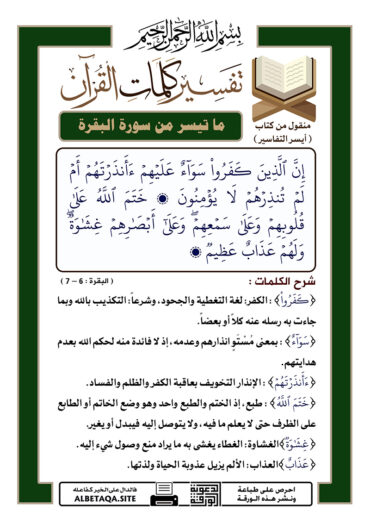 بِسْمِ اللَّهِ الرَّحْمَٰنِ الرَّحِيمِ
تفسير كلمات القرآن
منقول من كتاب
( أيسر التفاسير )
ما تيسر من سورة البقرة
إِنَّ ٱلَّذِينَ كَفَرُواْ سَوَآءٌ عَلَيْهِمْ ءَأَنذَرْتَهُمْ أَمْ
لَمْ تُنذِرْهُمْ لَا يُؤْمِنُونَ ۝ خَتَمَ ٱللَّهُ عَلَىٰ
قُلُوبِهِمْ وَعَلَىٰ سَمْعِهِمْۖ وَعَلَىٰٓ أَبْصَٰرِهِمْ غِشَٰوَةٌۖ
وَلَهُمْ عَذَابٌ عَظِيمٌ ۝
شرح الكلمات :
( البقرة : 6 – 7 )
﴿كَفَرُواْ﴾ : الكفر: لغة التغطية والجحود، وشرعاً: التكذيب بالله وبما
جاءت به رسله عنه كلاً أو بعضاً.
﴿سَوَآءٌ﴾ : بمعنى مُسْتَوٍ انذارهم وعدمه، إذ لا فائدة منه لحكم الله بعدم
هدايتهم.
﴿ءَأَنذَرْتَهُمْ﴾ : الإنذار التخويف بعاقبة الكفر والظلم والفساد.
﴿خَتَمَ ٱللَّهُ﴾ : طبع، إذ الختم والطبع واحد وهو وضع الخاتم أو الطابع
على الظرف حتى لا يعلم ما فيه، ولا يتوصل إليه فيبدل أو يغير.
﴿غِشَٰوَةٌ﴾الغشاوة: الغطاء يغشى به ما يراد منع وصول شيء إليه.
﴿عَذَابٌ﴾العذاب: الألم يزيل عذوبة الحياة ولذتها.
احرص على طباعة
ونشر هذه الورقة
الدعوية
الورقة
فالدال على الخير كفاعله
ALBETAQA.SITE